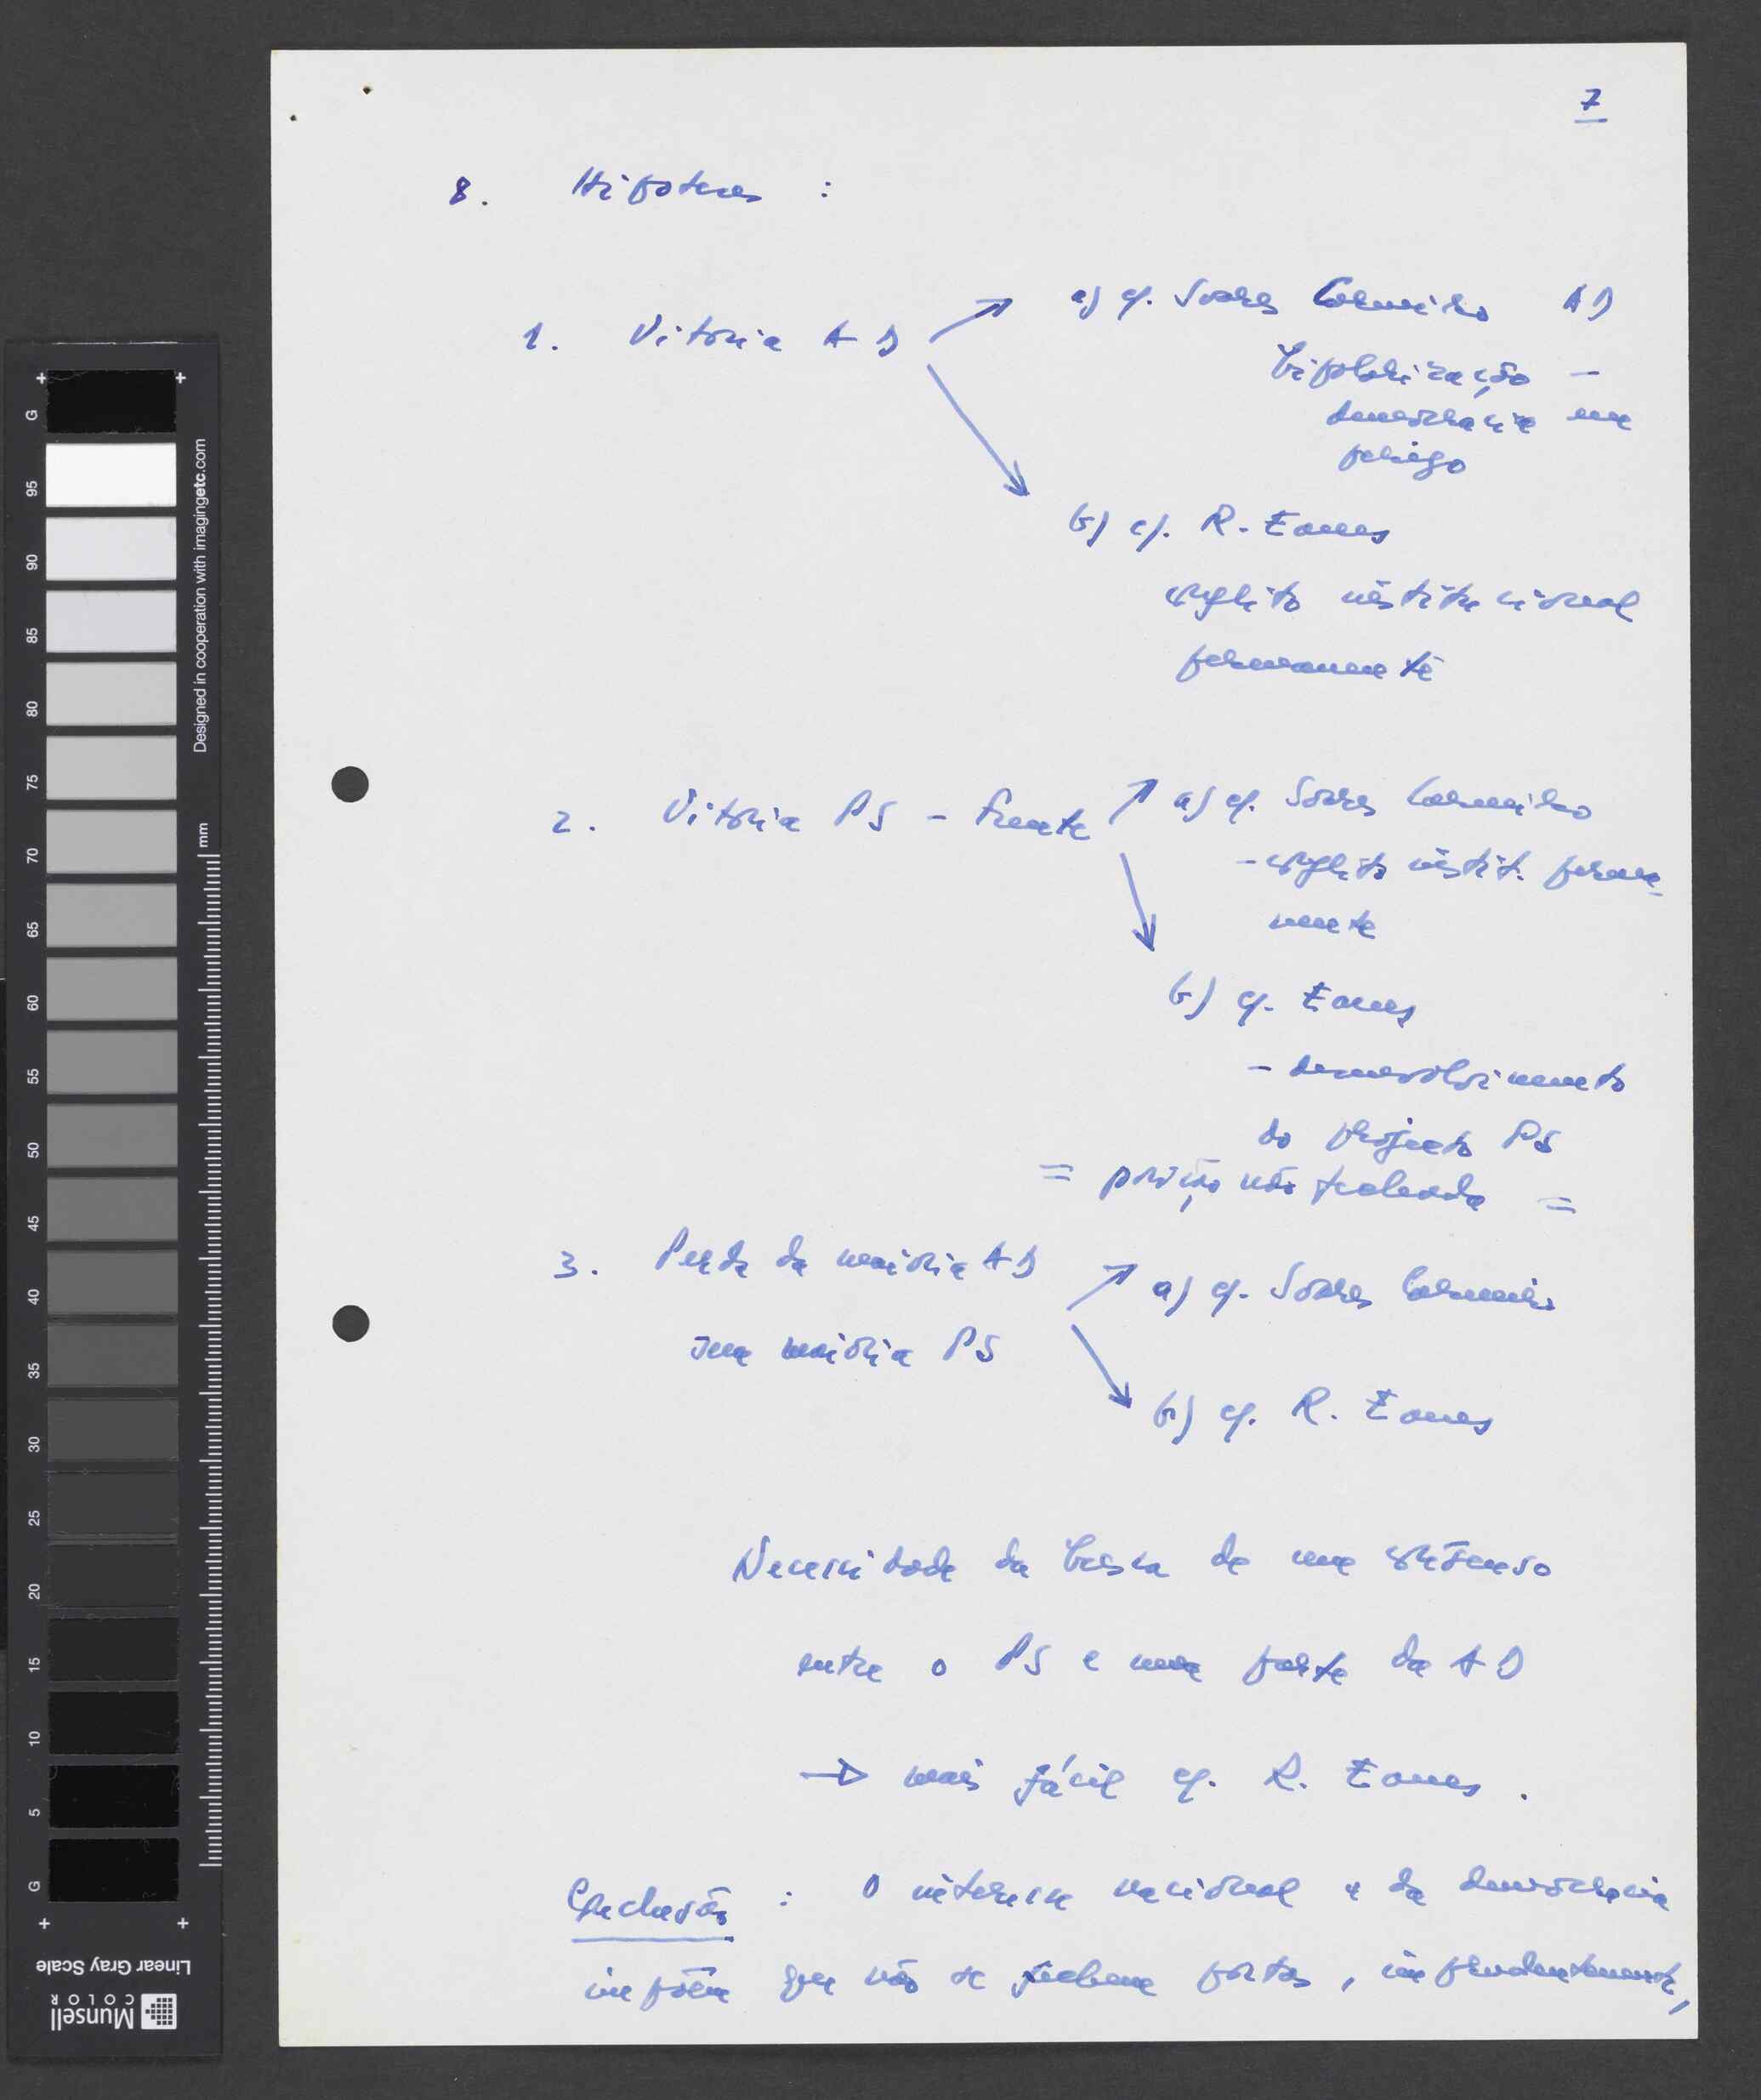 7
8. Hipoteses :
1. Vitoria AD
a) c/. Soares Carneiro AD
bipolarização -
democracia em
perigo
b) c/. R. Eanes
conflito institucional
permanente
2. Vitoria PS - Frente
a) c/. Soares Carneiro
- conflito instit. perma-
nente
b) c/. Eanes
- desenvolvimento
do projecto PS
= posição não fechada =
3. Perda da maioria AD
sem maioria PS
a) c/. Soares Carneiro
b) c/. R. Eanes
Necessidade da busca de um consenso
entre o PS e uma parte da AD
→ mais fácil c/. R. Eanes.
Conclusão : O interesse nacional e da democracia
impõem que não se fechem portas, imprudentemente,
G
95
90
85
80
75
70
65
60
55
50
45
40
35
30
25
20
15
10
5
G
Designed in cooperation with imagingetc.com
mm
Linear Gray Scale
Munsell
COLOR